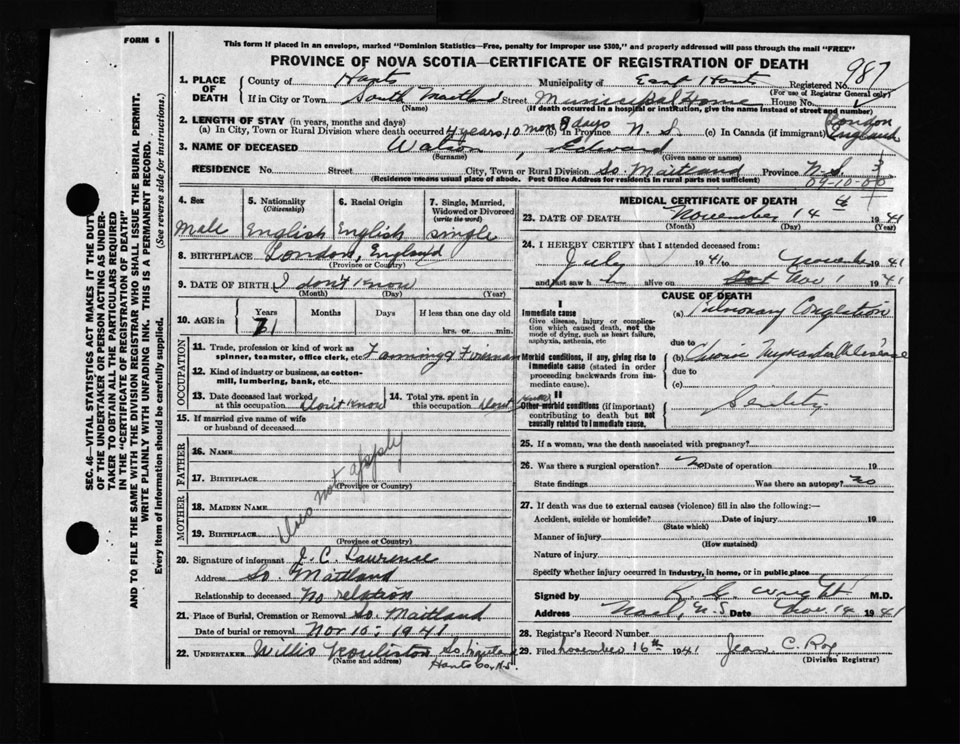 FORM 6
This form if placed in an envelope, marked "Dominion Statistics—Free, penalty for improper use $300," and properly addressed will pass through the mail "FREE"
PROVINCE OF NOVA SCOTIA—CERTIFICATE OF REGISTRATION OF DEATH
987
1. PLACE OF DEATH County of Hants Municipality of East Hants Registered No.
(For use of Registrar General only)
If in City or Town South Maitland Street Municipal Home House No.
(Name) (If death occurred in a hospital or institution, give the name instead of street and number)
2. LENGTH OF STAY (in years, months and days) London
(a) In City, Town or Rural Division where death occurred 4 years 10 mon 8 days (b) In Province N. S. (c) In Canada (if immigrant) England
3. NAME OF DECEASED Watson, Edward
(Surname) (Given name or names)
RESIDENCE No. Street City, Town or Rural Division So. Maitland Province N.S.
(Residence means usual place of abode. Post Office Address for residents in rural parts not sufficient)
09-10-00
4. Sex 5. Nationality (Citizenship) 6. Racial Origin 7. Single, Married, Widowed or Divorced (write the word)
Male English English Single
8. BIRTHPLACE London, England
(Province or Country)
9. DATE OF BIRTH I don't know
(Month) (Day) (Year)
10. AGE in Years Months Days If less than one day
71 hrs. or min.
OCCUPATION
11. Trade, profession or kind of work as spinner, teamster, office clerk, etc. Farming & Fireman
12. Kind of industry or business, as cotton-mill, lumbering, bank, etc.
13. Date deceased last worked at this occupation Don't Know 14. Total yrs. spent in this occupation Don't Know
15. If married give name of wife or husband of deceased
FATHER
16. NAME
17. BIRTHPLACE
(Province or Country)
MOTHER
18. MAIDEN NAME
19. BIRTHPLACE
(Province or Country)
Does not apply
20. Signature of informant J. C. Lawrence
Address So. Maitland
Relationship to deceased No relation
21. Place of Burial, Cremation or Removal So. Maitland
Date of burial or removal Nov 15, 1941
22. UNDERTAKER Willis So. Maitland
(Name and address) Hants Co, N.S.
MEDICAL CERTIFICATE OF DEATH
23. DATE OF DEATH November 14 1941
(Month) (Day) (Year)
24. I HEREBY CERTIFY that I attended deceased from:
July 1941 to November 1941
and last saw h alive on Nov 1 1941
CAUSE OF DEATH
I
Immediate cause
Give disease, injury or complication which caused death, not the mode of dying, such as heart failure, asphyxia, asthenia, etc.
(a) Pulmonary Congestion
due to
Morbid conditions, if any, giving rise to immediate cause (stated in order proceeding backwards from immediate cause).
(b) Chronic Myocardial Disease
due to
(c)
II
Other morbid conditions (if important) contributing to death but not causally related to immediate cause.
Senility
25. If a woman, was the death associated with pregnancy?
26. Was there a surgical operation? No Date of operation 19
State findings Was there an autopsy? No
27. If death was due to external causes (violence) fill in also the following:—
Accident, suicide or homicide? Date of injury 19
(State which)
Manner of injury
(How sustained)
Nature of injury
Specify whether injury occurred in industry, in home, or in public place
Signed by Wright M.D.
Address Noel, N.S. Date Nov. 14 1941
28. Registrar's Record Number
29. Filed November 16th 1941 Jean C. Roy
(Division Registrar)
SEC. 46—VITAL STATISTICS ACT MAKES IT THE DUTY
OF THE UNDERTAKER OR PERSON ACTING AS UNDER-
TAKER TO OBTAIN ALL THE PARTICULARS REQUIRED
IN THE "CERTIFICATE OF REGISTRATION OF DEATH"
AND TO FILE THE SAME WITH THE DIVISION REGISTRAR WHO SHALL ISSUE THE BURIAL PERMIT.
WRITE PLAINLY WITH UNFADING INK. THIS IS A PERMANENT RECORD.
Every item of information should be carefully supplied. (See reverse side for instructions.)